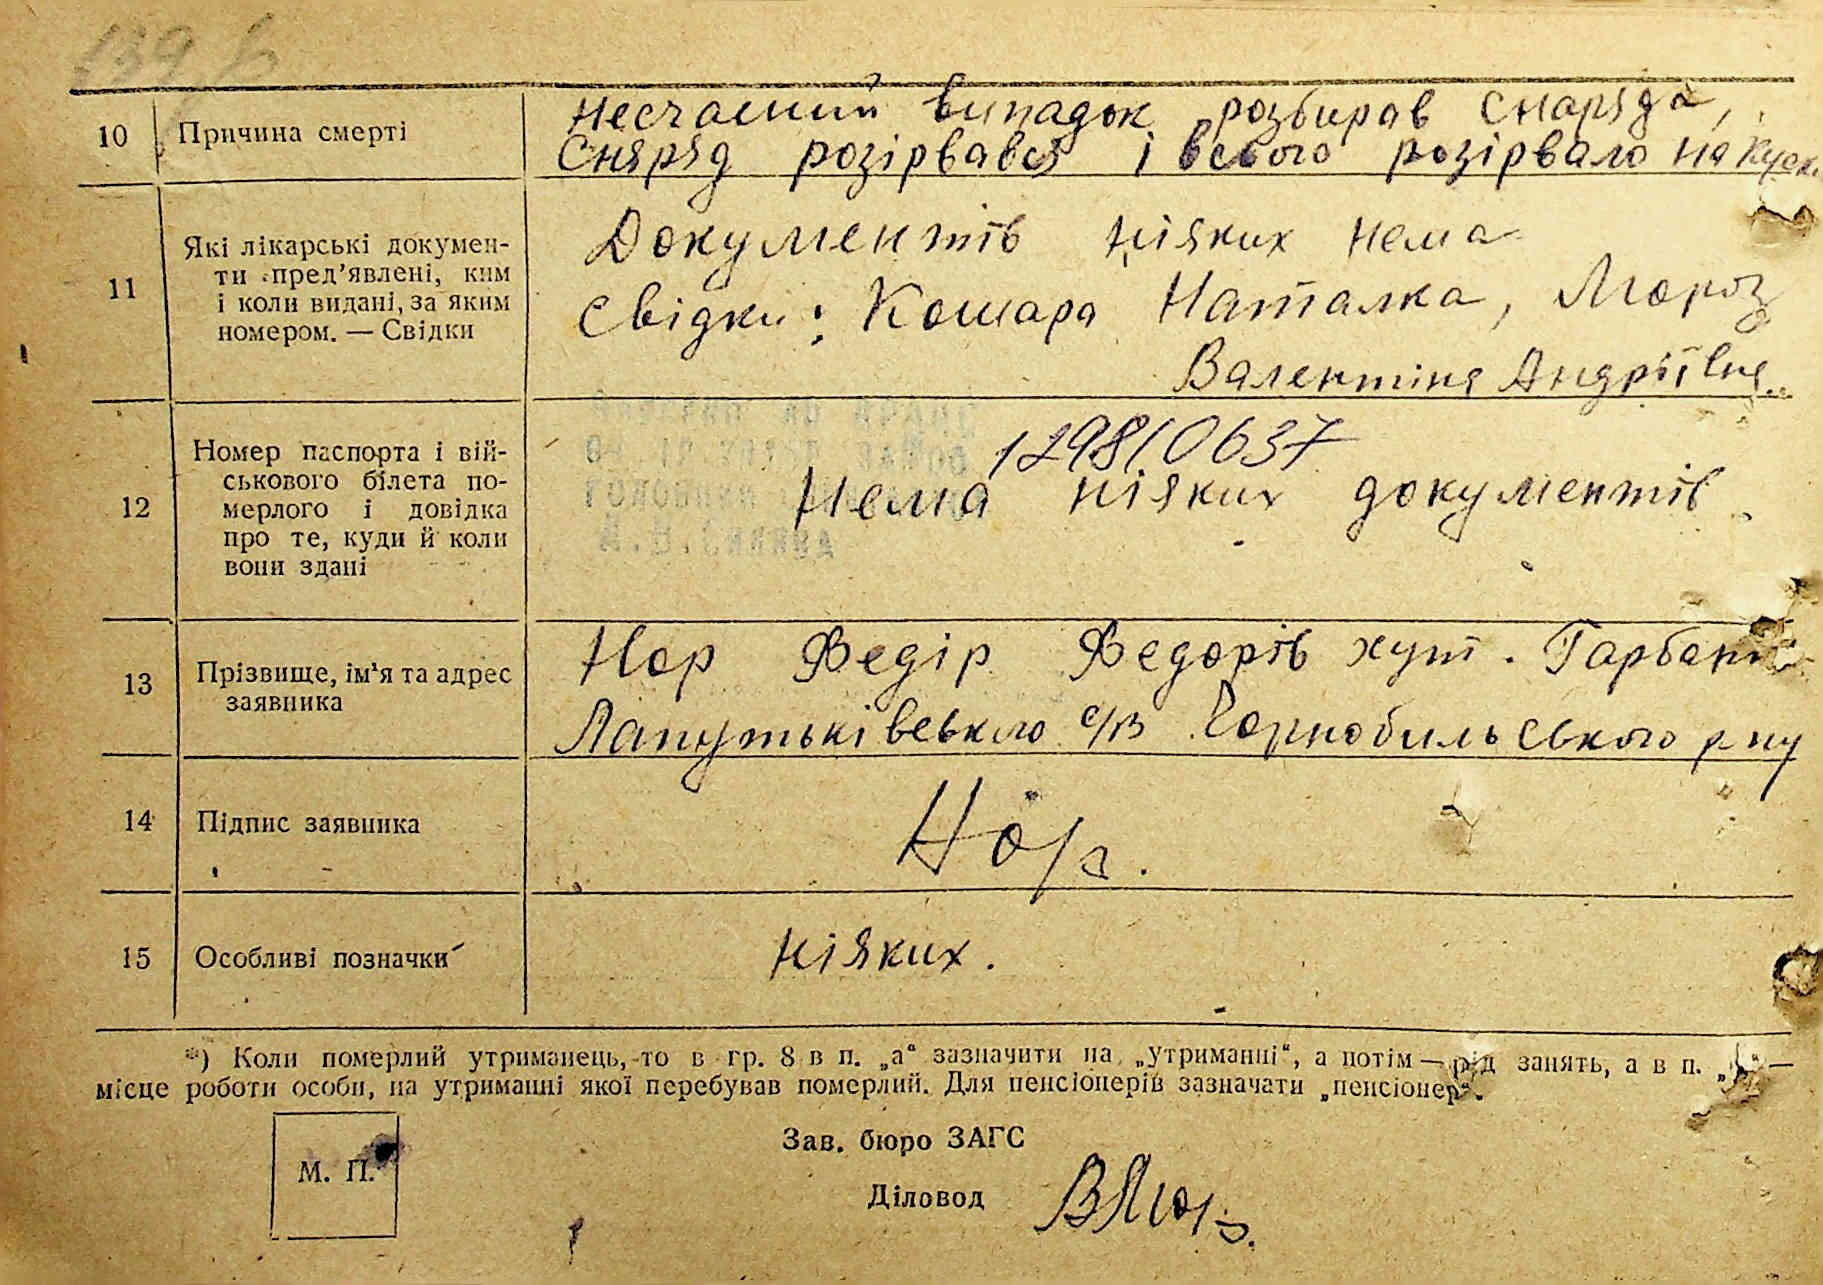 139
10 Причина смерті
несчасний випадок розбирав снаряда,
Снаряд розірвався і всього розірвало на куск.
11 Які лікарські докумен-
ти пред'явлені, ким
і коли видані, за яким
номером. — Свідки
Документів ніяких нема
Свідки: Кошара Наталка, Мороз
Валентина Андріївна
12 Номер паспорта і вій-
ськового білета по-
мерлого і довідка
про те, куди й коли
вони здані
129810637
Нема ніяких документів
13 Прізвище, ім'я та адрес
заявника
Нор Федір Федорів хут. Гарбарі
Лапутьківського с/в Чорнобильського р ну
14 Підпис заявника
Нор.
15 Особливі позначки
ніяких.
*) Коли померлий утриманець, то в гр. 8 в п. „а“ зазначити на „утриманні“, а потім — рід занять, а в п. —
місце роботи особи, на утриманні якої перебував померлий. Для пенсіонерів зазначати „пенсіонер“.
М. П.
Зав. бюро ЗАГС
Діловод